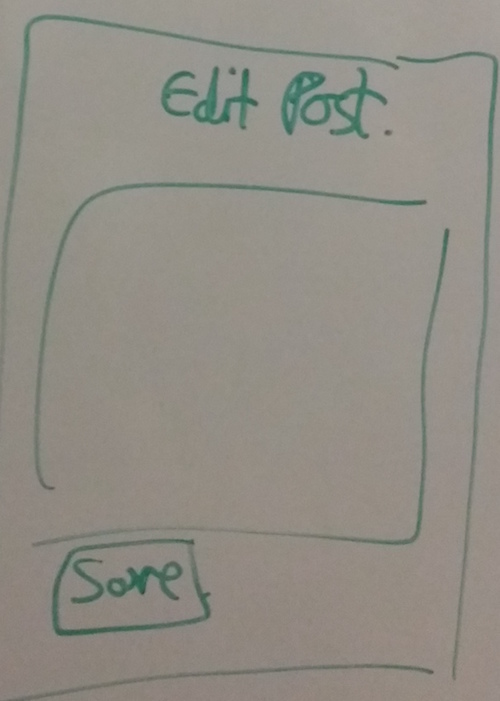 Edit Post.
Save